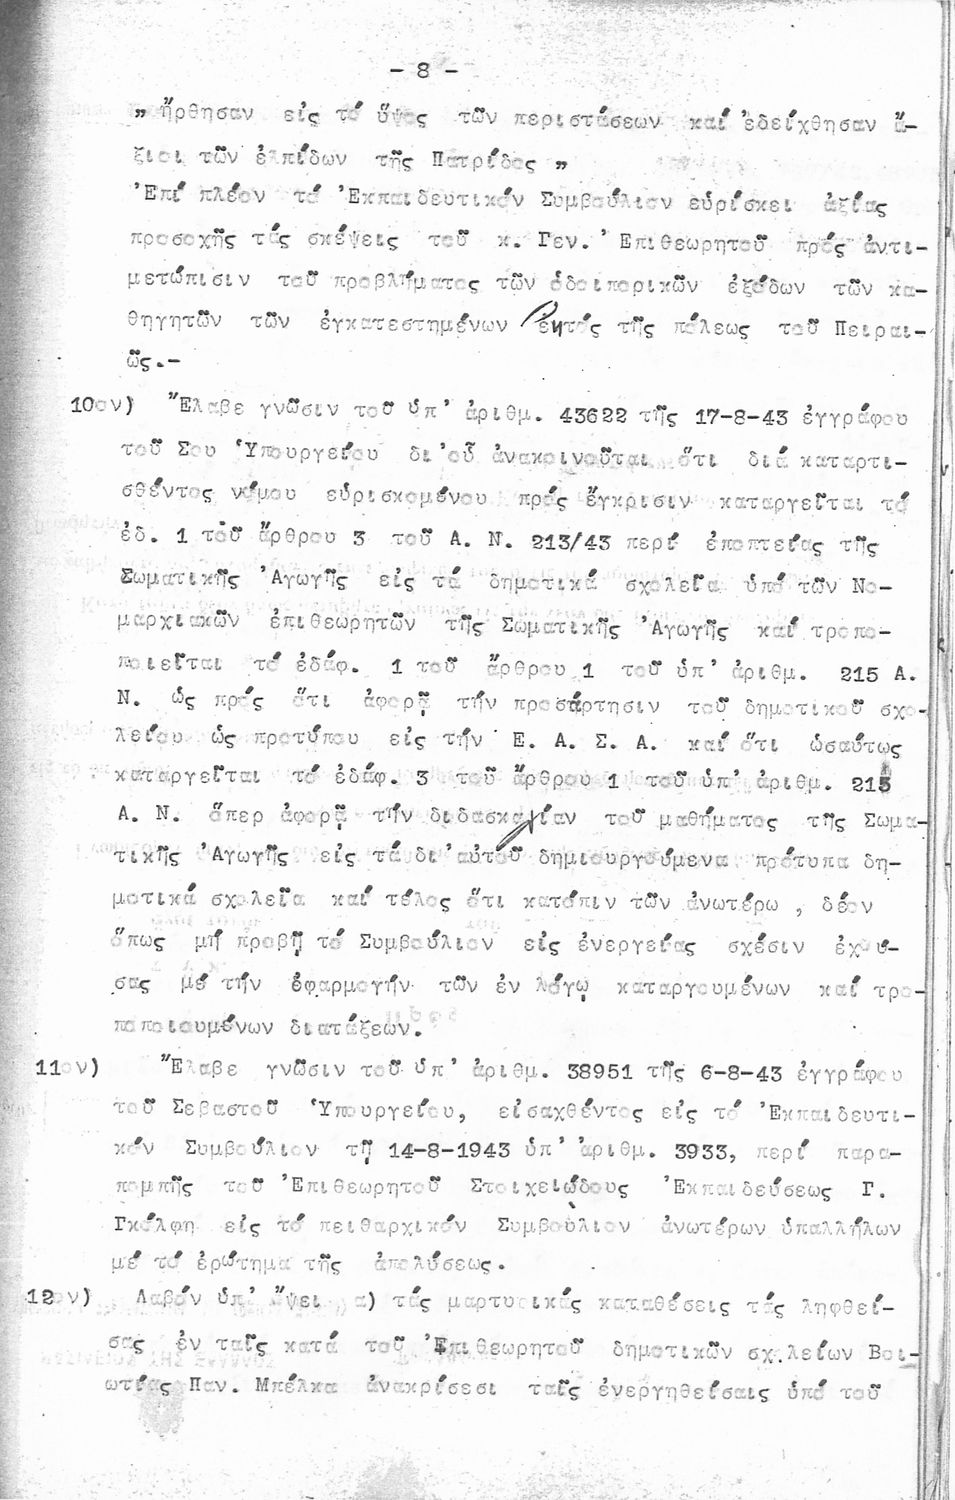 - 8 -
„ ἤρθησαν εἰς τό ὕψος τῶν περιστάσεων καί ἐδείχθησαν ἄ-
ξιοι τῶν ἐλπίδων τῆς Πατρίδος „
Ἐπί πλέον τό Ἐκπαιδευτικόν Συμβούλιον εὑρίσκει ἀξίας
προσοχῆς τάς σκέψεις τοῦ κ. Γεν. Ἐπιθεωρητοῦ πρός ἀντι-
μετώπισιν τοῦ προβλήματος τῶν ὁδοιπορικῶν ἐξόδων τῶν κα-
θηγητῶν τῶν ἐγκατεστημένων ἐκτός τῆς πόλεως τοῦ Πειραι-
ῶς.-
10ον) Ἔλαβε γνῶσιν τοῦ ὑπ' ἀριθμ. 43622 τῆς 17-8-43 ἐγγράφου
τοῦ Σου Ὑπουργείου δι'οὗ ἀνακοινοῦται ὅτι διά καταρτι-
σθέντος νόμου εὑρισκομένου πρός ἔγκρισιν καταργεῖται τό
ἐδ. 1 τοῦ ἄρθρου 3 τοῦ Α. Ν. 213/43 περί ἐποπτείας τῆς
Σωματικῆς Ἀγωγῆς εἰς τά δημοτικά σχολεῖα ὑπό τῶν Νο-
μαρχιακῶν ἐπιθεωρητῶν τῆς Σωματικῆς Ἀγωγῆς καί τροπο-
ποιεῖται τό ἐδάφ. 1 τοῦ ἄρθρου 1 τοῦ ὑπ' ἀριθμ. 215 Α.
Ν. ὡς πρός ὅτι ἀφορᾷ τήν προσάρτησιν τοῦ δημοτικοῦ σχο-
λείου ὡς προτύπου εἰς τήν Ε. Α. Σ. Α. καί ὅτι ὡσαύτως
καταργεῖται τό ἐδάφ. 3 τοῦ ἄρθρου 1 τοῦ ὑπ' ἀριθμ. 215
Α. Ν. ὅπερ ἀφορᾷ τήν διδασκαλίαν τοῦ μαθήματος τῆς Σωμα-
τικῆς Ἀγωγῆς εἰς τά δι'αὐτοῦ δημιουργούμενα πρότυπα δη-
μοτικά σχολεῖα καί τέλος ὅτι κατόπιν τῶν ἀνωτέρω , δέον
ὅπως μή προβῇ τό Συμβούλιον εἰς ἐνεργείας σχέσιν ἐχού-
σας μέ τήν ἐφαρμογήν τῶν ἐν λόγῳ καταργουμένων καί τρο-
ποποιουμένων διατάξεων.
11ον) Ἔλαβε γνῶσιν τοῦ ὑπ' ἀριθμ. 38951 τῆς 6-8-43 ἐγγράφου
τοῦ Σεβαστοῦ Ὑπουργείου, εἰσαχθέντος εἰς τό Ἐκπαιδευτι-
κόν Συμβούλιον τῇ 14-8-1943 ὑπ' ἀριθμ. 3933, περί παρα-
πομπῆς τοῦ Ἐπιθεωρητοῦ Στοιχειώδους Ἐκπαιδεύσεως Γ.
Γκόλφη εἰς τό πειθαρχικόν Συμβούλιον ἀνωτέρων ὑπαλλήλων
μέ τό ἐρώτημα τῆς ἀπολύσεως.
12ον) Λαβόν ὑπ' ὄψει α) τάς μαρτυρικάς καταθέσεις τάς ληφθεί-
σας ἐν ταῖς κατά τοῦ Ἐπιθεωρητοῦ δημοτικῶν σχολείων Βοι-
ωτίας Παν. Μπέλκα ἀνακρίσεσι ταῖς ἐνεργηθείσαις ὑπό τοῦ